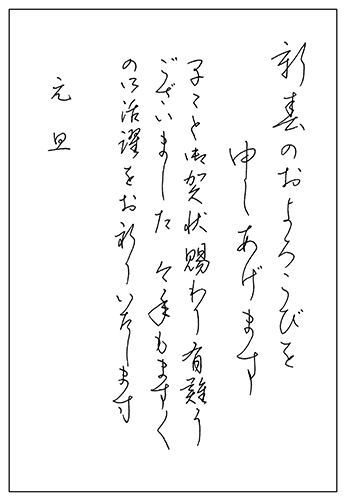 新春のおよろこびを
申しあげます
早々と御賀状賜わり有難う
ございました 今年もます〱
の御活躍をお祈りいたします
元旦